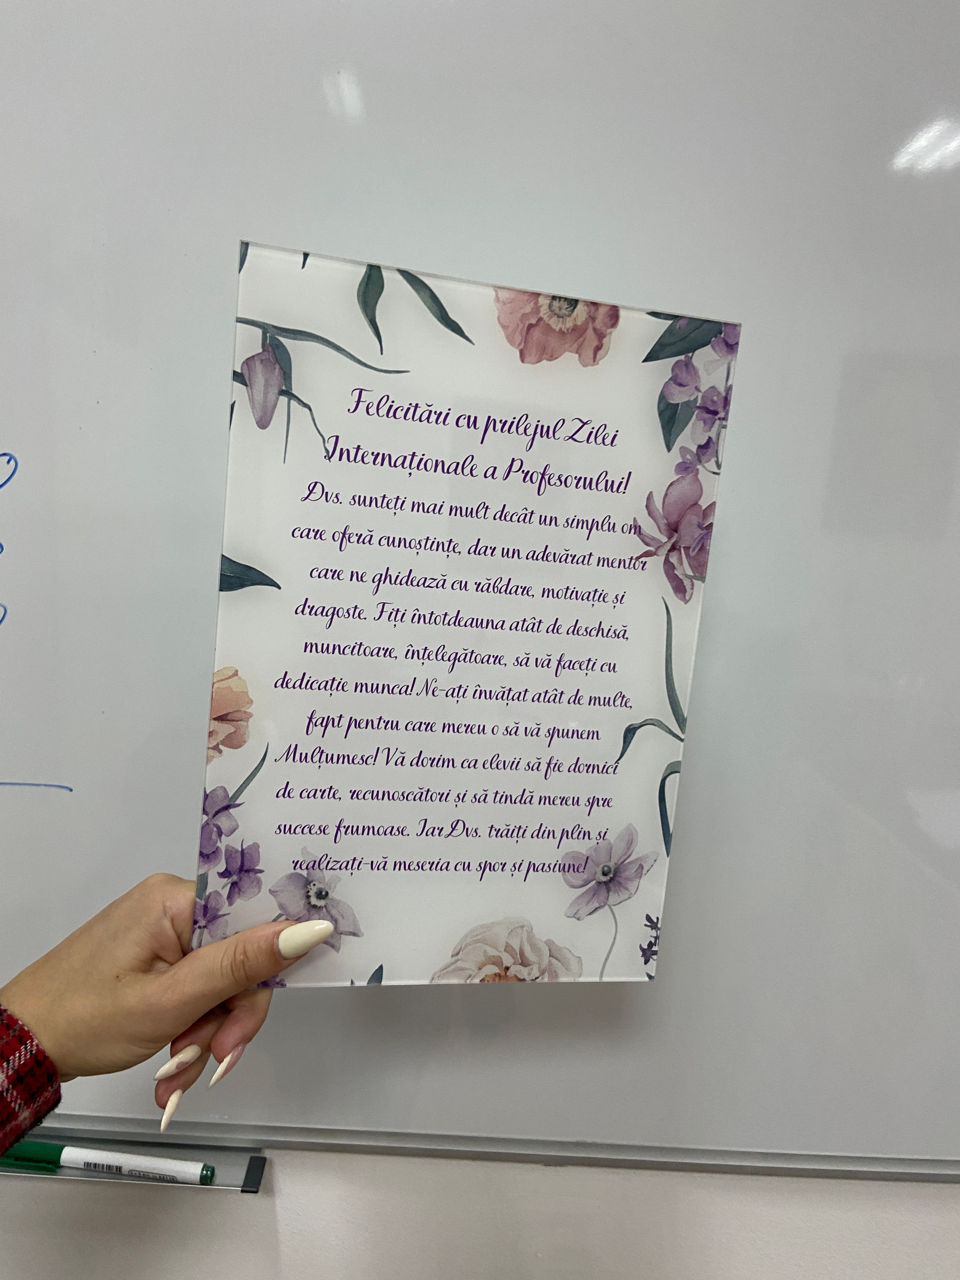 Felicitări cu prilejul Zilei
Internaționale a Profesorului!
Dvs. sunteți mai mult decât un simplu om
care oferă cunoștințe, dar un adevărat mentor
care ne ghidează cu răbdare, motivație și
dragoste. Fiți întotdeauna atât de deschisă,
muncitoare, înțelegătoare, să vă faceți cu
dedicație munca! Ne-ați învățat atât de multe,
fapt pentru care mereu o să vă spunem
Mulțumesc! Vă dorim ca elevii să fie dornici
de carte, recunoscători și să tindă mereu spre
succese frumoase. Iar Dvs. trăiți din plin și
realizați-vă meseria cu spor și pasiune!